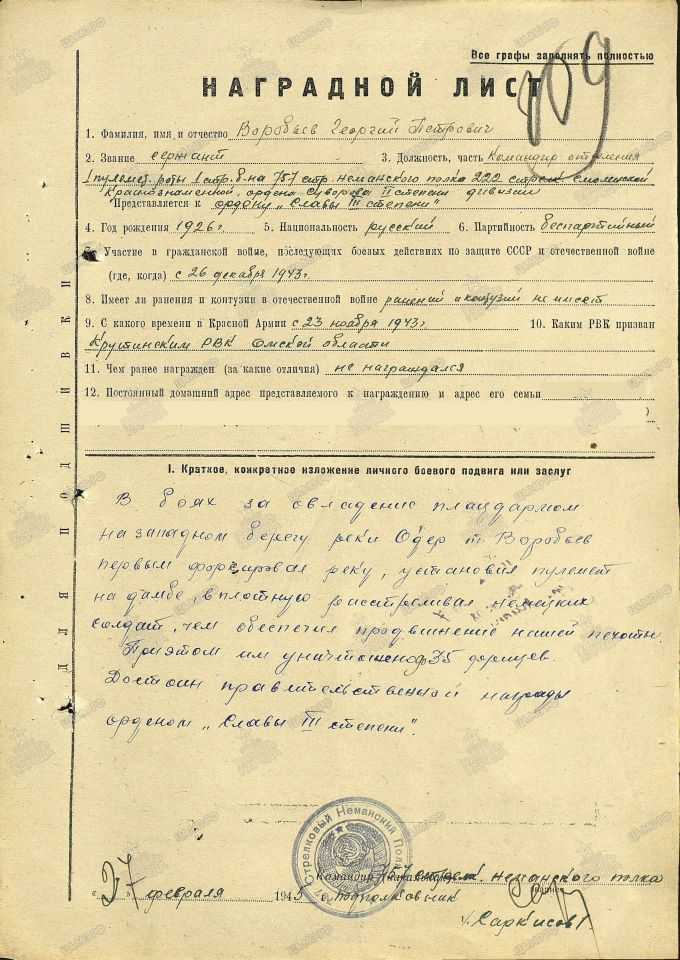 Все графы заполнять полностью
809
НАГРАДНОЙ ЛИСТ
1. Фамилия, имя и отчество Воробьев Георгий Петрович
2. Звание сержант 3. Должность, часть Командир отделения
1 пулемет. роты 1 стр. б-на 757 стр. неманского полка 222 стрелк. смоленской
Краснознаменной, ордена Суворова II степени дивизии
Представляется к ордену „Славы III степени"
4. Год рождения 1926 г. 5. Национальность русский 6. Партийность беспартийный
7. Участие в гражданской войне, последующих боевых действиях по защите СССР и отечественной войне
(где, когда) с 26 декабря 1943 г.
8. Имеет ли ранения и контузии в отечественной войне ранений и контузий не имеет
9. С какого времени в Красной Армии с 23 ноября 1943 г. 10. Каким РВК призван
Крутинским РВК Омской области
11. Чем ранее награжден (за какие отличия) не награждался
12. Постоянный домашний адрес представляемого к награждению и адрес его семьи
)
ДЛЯ ПОДШИВКИ
I. Краткое, конкретное изложение личного боевого подвига или заслуг
В боях за овладение плацдармом
на западном берегу реки Одер т. Воробьев
первым форсировал реку, установил пулемет
на дамбе, в плотную расстреливал немецких
солдат, чем обеспечил продвижение нашей пехоты.
При этом им уничтожено 35 фрицев.
Достоин правительственной награды
орденом „Славы III степени".
Стрелковый Неманский Полк
Командир 757 стрелк. неманского полка
„27 февраля 1945 г. подполковник
Саркисов
ЦАМО.РФ